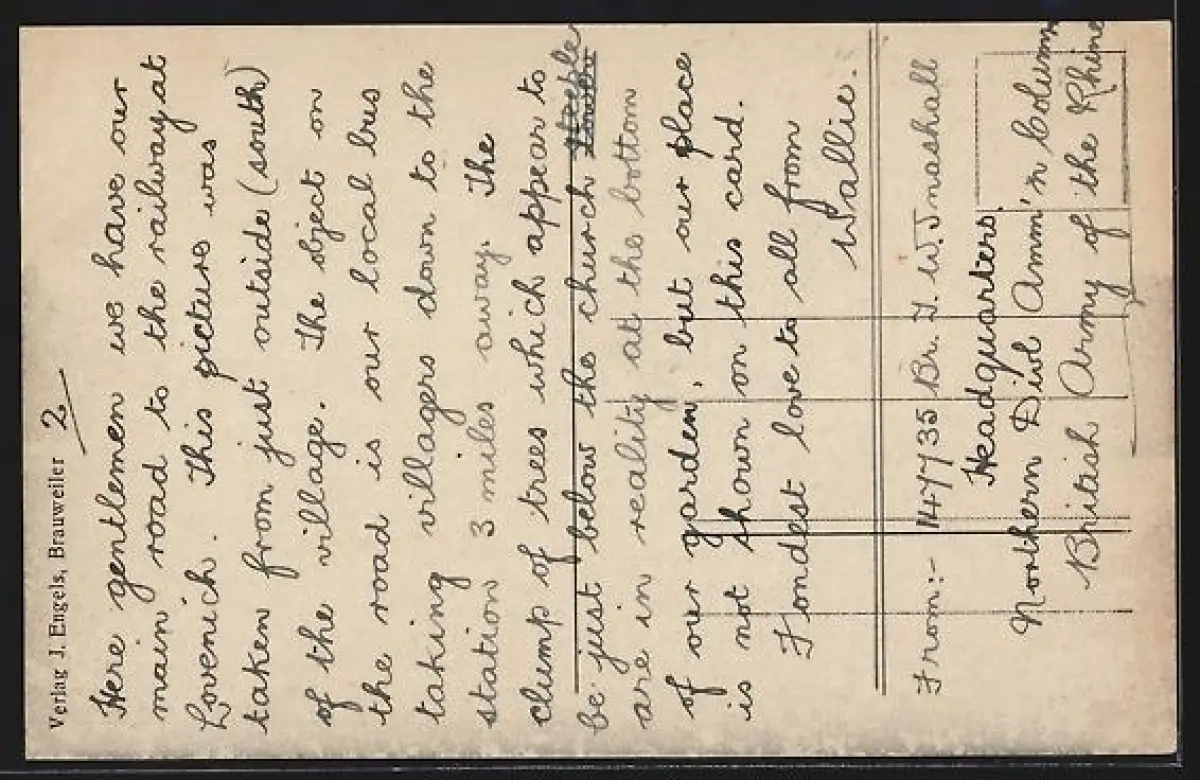 Verlag J. Engels, Brauweiler 2
Here gentlemen we have our
main road to the railway at
Lovenich. This picture was
taken from just outside (south)
of the village. The object on
the road is our local bus
taking villagers down to the
station 3 miles away. The
clump of trees which appear to
be just below the church steeple
are in reality at the bottom
of our garden, but our place
is not shown on this card.
Fondest love to all from
Wallie.
From:- 147735 Br. T. W. Tnashall
Headquarters.
Northern Divl Amm'n Column
British Army of the Rhine